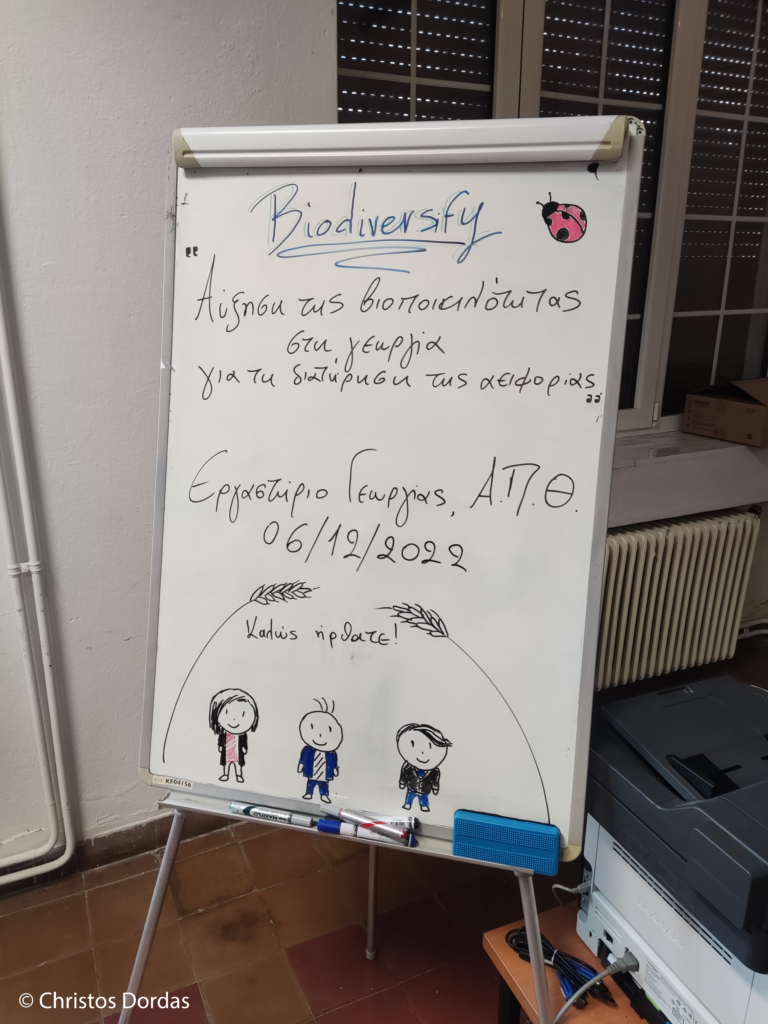 Biodiversify
"Αύξηση της βιοποικιλότητας
στη γεωργία
για τη διατήρηση της αειφορίας"
Εργαστήριο Γεωργίας, Α.Π.Θ.
06/12/2022
Καλώς ήρθατε!
KF04156
© Christos Dordas